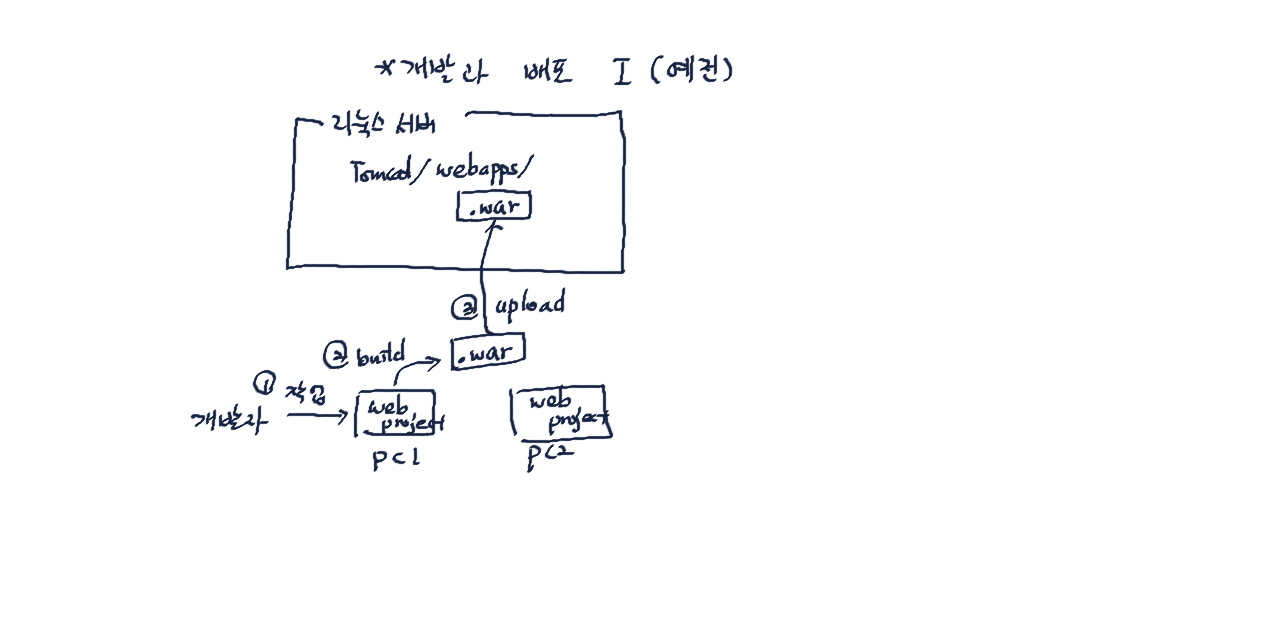 *개발과 배포 I (예전)
리눅스 서버
Tomcad/webapps/
.war
③ upload
② build
.war
① 작업
개발자
web
project
web
project
PC1
PC2